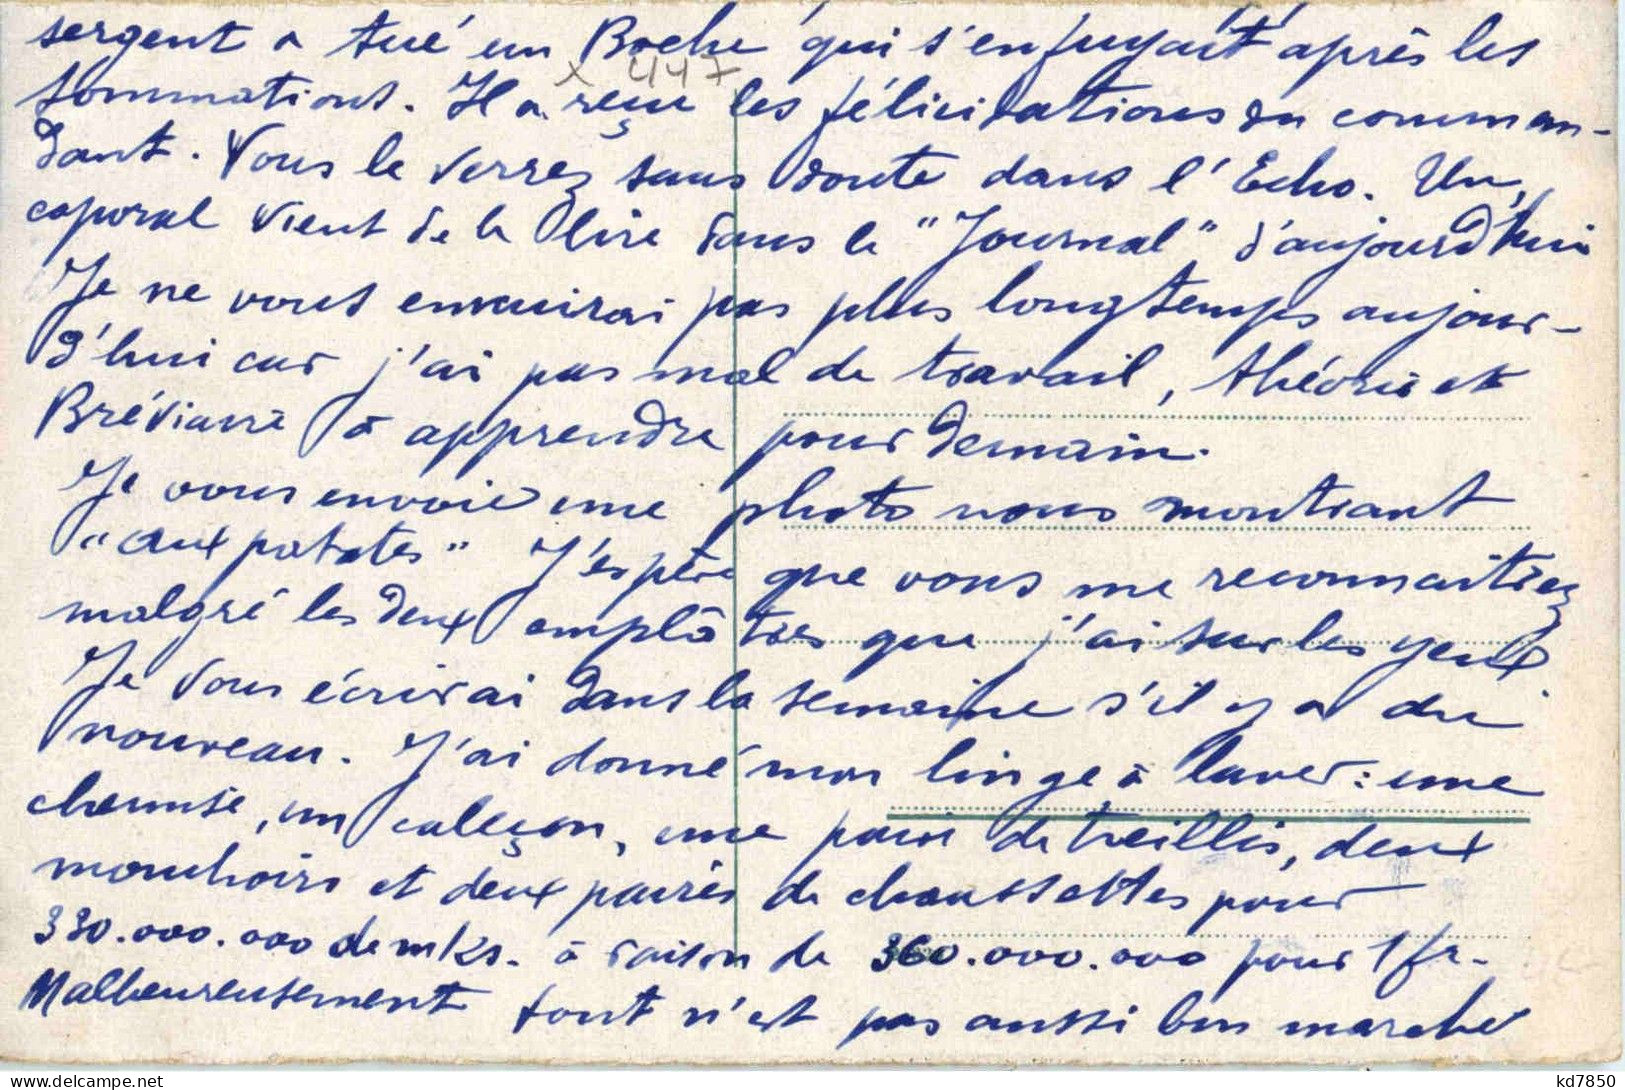 sergent a tué un Boche qui s'enfuyait après les
x 447
sommations. Il a reçu les félicitations du comman-
dant. Vous le verrez sans doute dans l'Echo. Un
caporal vient de le lire dans le "Journal" d'aujourd'hui
Je ne vous ennuirai pas plus longtemps aujour-
d'hui car j'ai pas mal de travail, théorie et
Bréviaire à apprendre pour demain.
Je vous envoie une photo nous montrant
"aux patates" J'espère que vous me reconnaitrez
malgré les deux emplâtres que j'ai sur les yeux
Je vous écrirai dans la semaine s'il y a du
nouveau. J'ai donné mon linge à laver : une
chemise, un caleçon, une paire de treillis, deux
mouchoirs et deux paires de chaussettes pour
330.000.000 de mks. à raison de 360.000.000 pour 1 fr.
Malheureusement tout n'est pas aussi bon marché
delcampe.net
kd7850